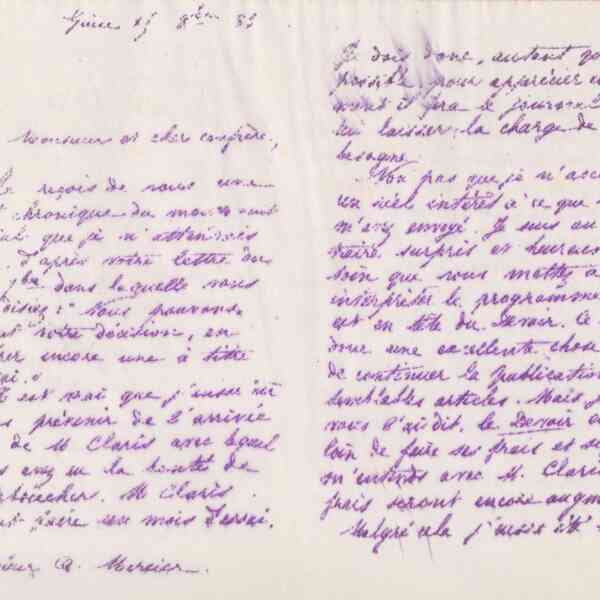 Guise
8bre 8
Monsieur et cher confrère,
Je reçois de vous une
chronique du mouvement
que je n'attendais
. D'après votre lettre du
7bre dans laquelle vous
disiez : "Nous pouvons,
votre décision, en
encore une à titre
."
est vrai que j'eusse dû
prévenir de l'arrivée
de M Claris avec lequel
avez eu la bonté de
aboucher. M Claris
faire un mois d'essai.
A. Mercier.
Je dois donc, autant que
possible pour apprécier
il fera le journal
lui laisser la charge de
besogne.
Non pas que je n'acc
un réel intérêt à ce que
m'avez envoyé. Je suis au
traire surpris et heureux
soin que vous mettez à
interpréter le programme
est en tête du Devoir. Ce
donc une excellente chose
de continuer la publication
semblables articles. Mais je
vous l'ai dit, le Devoir
loin de faire ses frais et
m'entends avec M. Claris
frais seront encore augm
Malgré cela j'eusse été